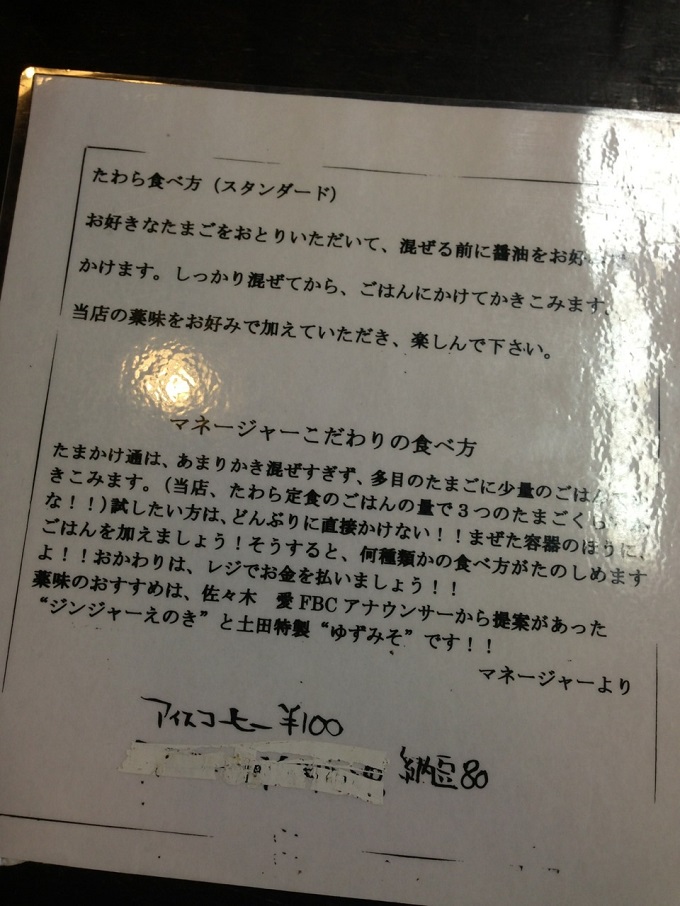 たわら食べ方（スタンダード）
お好きなたまごをおとりいただいて、混ぜる前に醤油をお好
かけます。しっかり混ぜてから、ごはんにかけてかきこみます。
当店の薬味をお好みで加えていただき、楽しんで下さい。
マネージャーこだわりの食べ方
たまかけ通は、あまりかき混ぜすぎず、多目のたまごに少量のごはん
きこみます。(当店、たわら定食のごはんの量で３つのたまごくら
な！！)試したい方は、どんぶりに直接かけない！！まぜた容器のほうに、
ごはんを加えましょう！そうすると、何種類かの食べ方がたのしめます
よ！！おかわりは、レジでお金を払いましょう！！
薬味のおすすめは、佐々木　愛FBCアナウンサーから提案があった
“ジンジャーえのき”と土田特製“ゆずみそ”です！！
マネージャーより
アイスコーヒー ¥100
納豆80